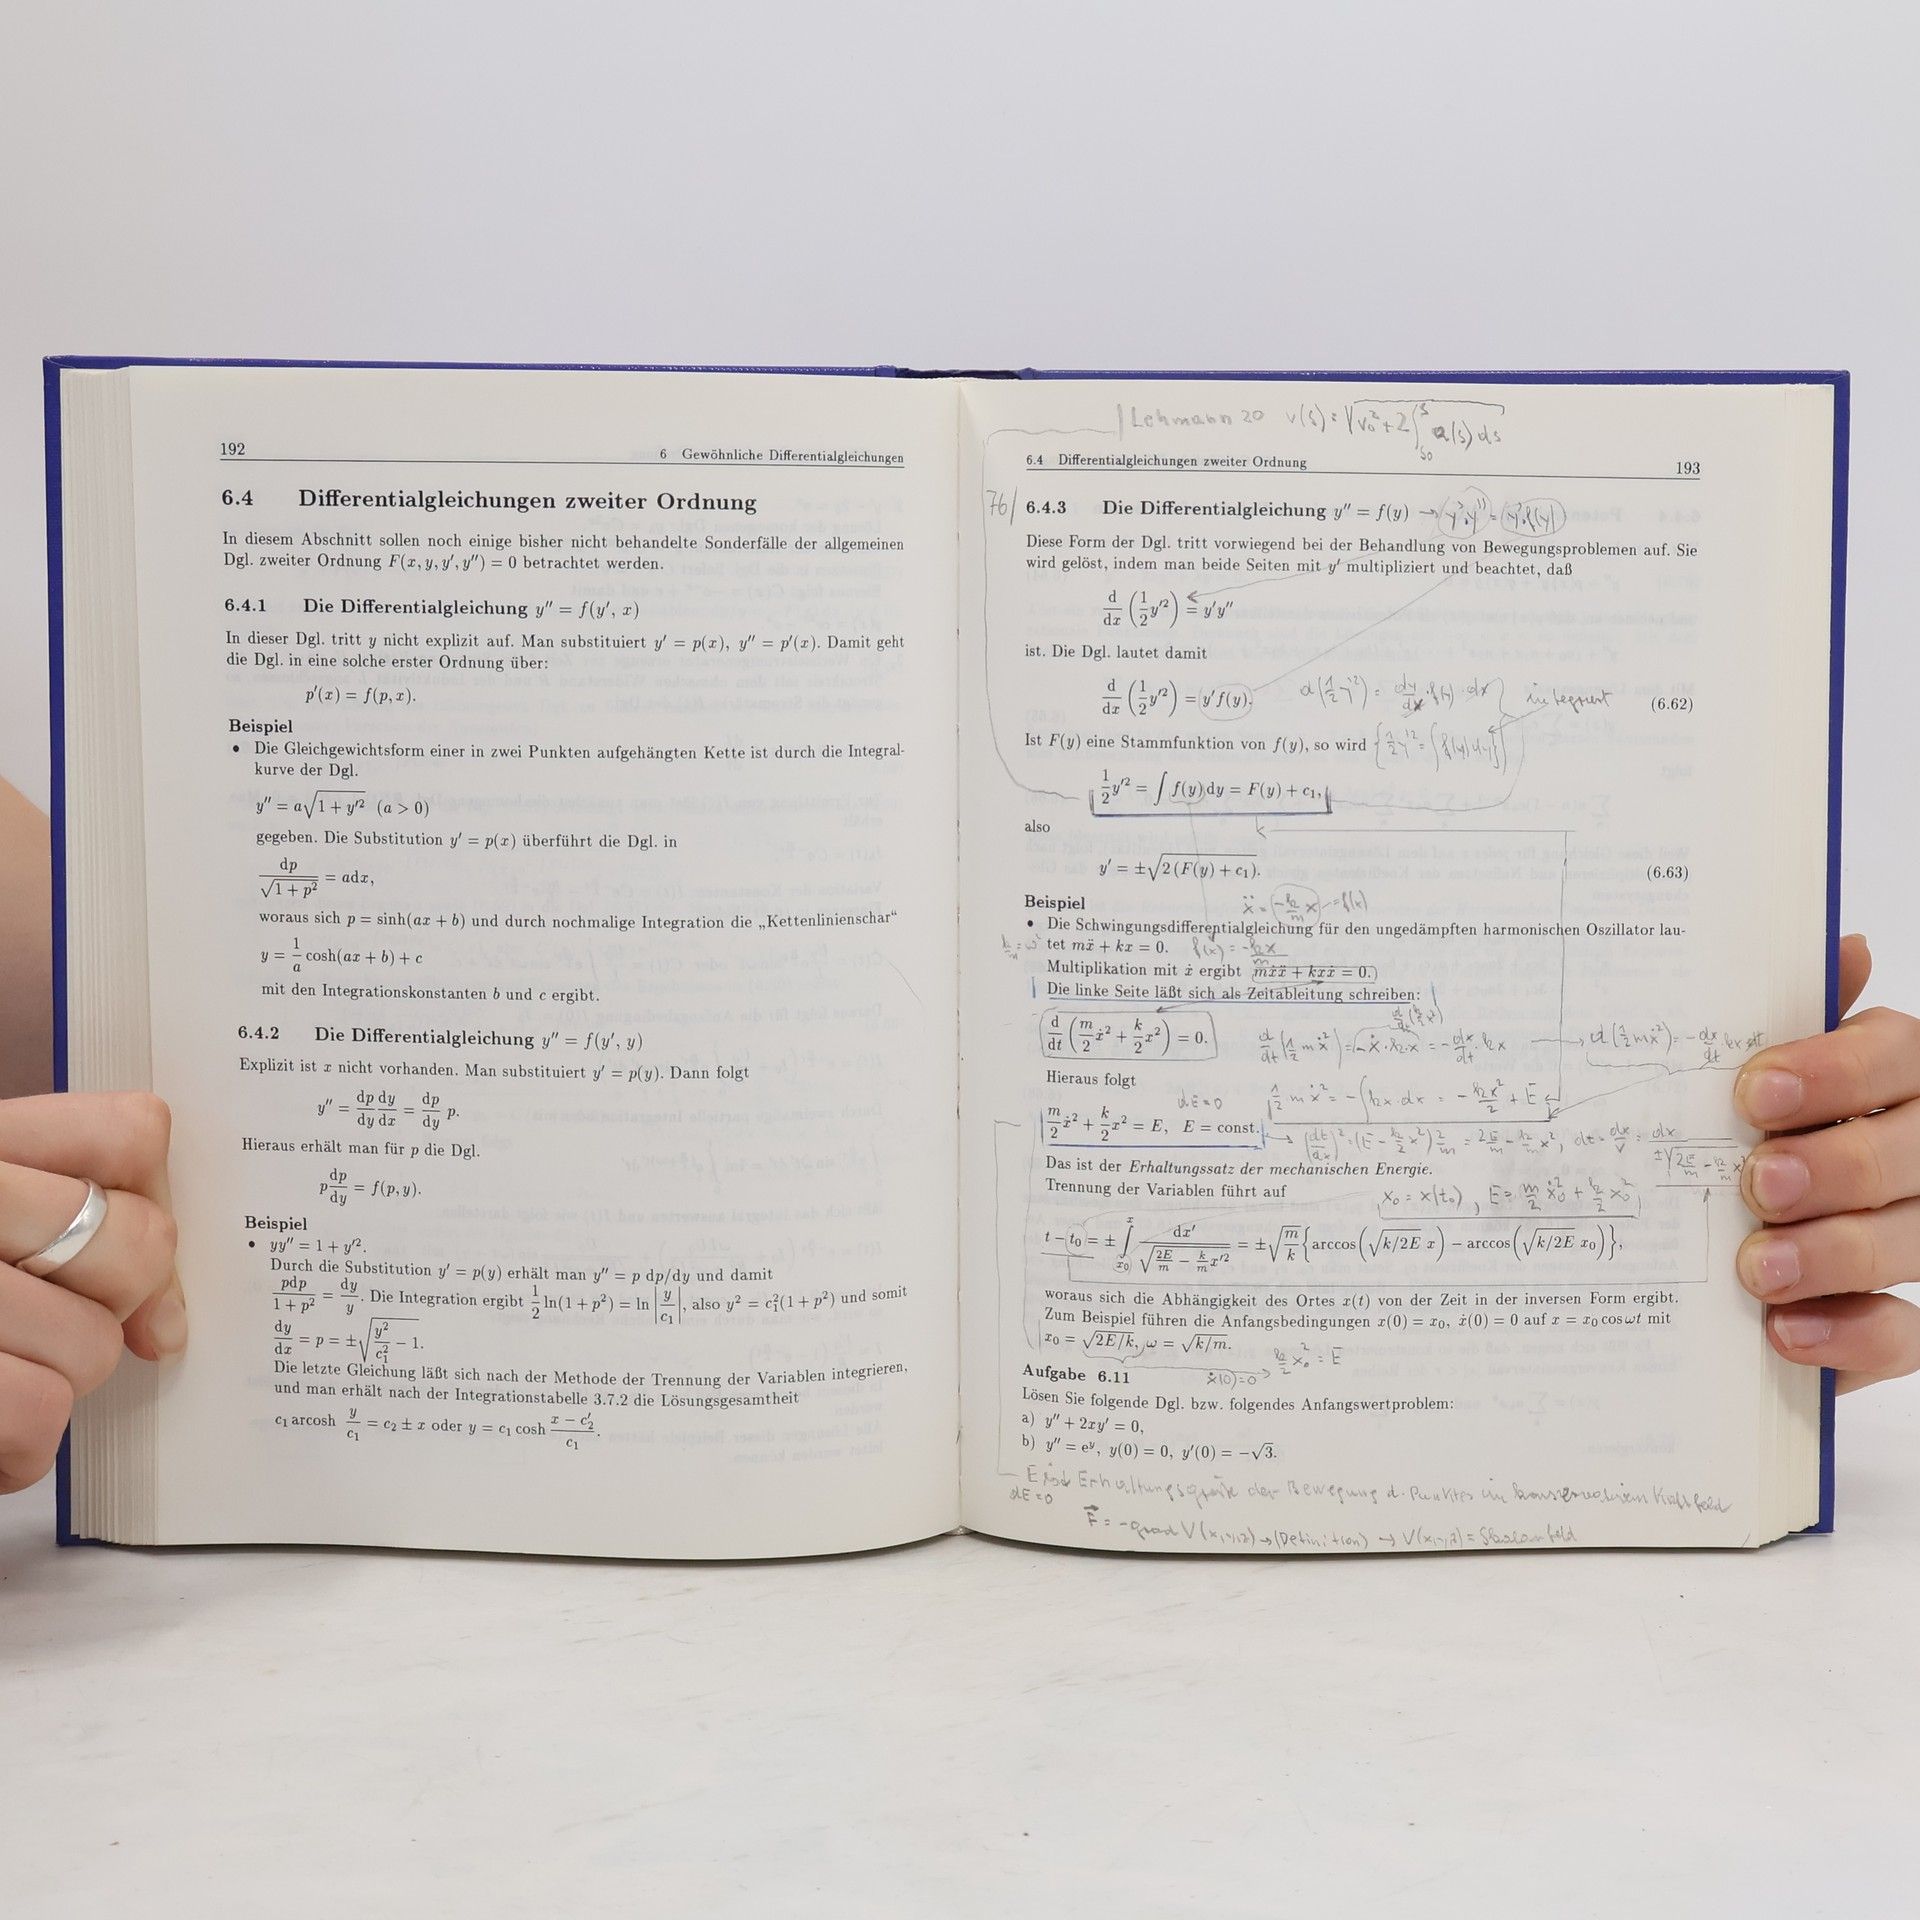 192
6 Gewöhnliche Differentialgleichungen
6.4 Differentialgleichungen zweiter Ordnung
In diesem Abschnitt sollen noch einige bisher nicht behandelte Sonderfälle der allgemeinen
Dgl. zweiter Ordnung F(x, y, y′, y″) = 0 betrachtet werden.
6.4.1 Die Differentialgleichung y″ = f(y′, x)
In dieser Dgl. tritt y nicht explizit auf. Man substituiert y′ = p(x), y″ = p′(x). Damit geht
die Dgl. in eine solche erster Ordnung über:
p′(x) = f(p, x).
Beispiel
• Die Gleichgewichtsform einer in zwei Punkten aufgehängten Kette ist durch die Integral-
kurve der Dgl.
y″ = a√(1 + y′²) (a > 0)
gegeben. Die Substitution y′ = p(x) überführt die Dgl. in
dp/√(1 + p²) = adx,
woraus sich p = sinh(ax + b) und durch nochmalige Integration die „Kettenlinienschar“
y = 1/a cosh(ax + b) + c
mit den Integrationskonstanten b und c ergibt.
6.4.2 Die Differentialgleichung y″ = f(y′, y)
Explizit ist x nicht vorhanden. Man substituiert y′ = p(y). Dann folgt
y″ = dp/dy dy/dx = dp/dy p.
Hieraus erhält man für p die Dgl.
p dp/dy = f(p, y).
Beispiel
• yy″ = 1 + y′².
Durch die Substitution y′ = p(y) erhält man y″ = p dp/dy und damit
pdp/(1 + p²) = dy/y. Die Integration ergibt 1/2 ln(1 + p²) = ln |y/c₁|, also y² = c₁²(1 + p²) und somit
dy/dx = p = ±√(y²/c₁² − 1).
Die letzte Gleichung läßt sich nach der Methode der Trennung der Variablen integrieren,
und man erhält nach der Integrationstabelle 3.7.2 die Lösungsgesamtheit
c₁ arcosh y/c₁ = c₂ ± x oder y = c₁ cosh (x − c₂′)/c₁.
Lehmann 20 v(s) = √(v₀² + 2∫ₛ₀ˢ a(s) ds
6.4 Differentialgleichungen zweiter Ordnung
193
76/
6.4.3 Die Differentialgleichung y″ = f(y) → y′·y″ = y′·f(y)
Diese Form der Dgl. tritt vorwiegend bei der Behandlung von Bewegungsproblemen auf. Sie
wird gelöst, indem man beide Seiten mit y′ multipliziert und beachtet, daß
d/dx (1/2 y′²) = y′y″
ist. Die Dgl. lautet damit
d/dx (1/2 y′²) = y′f(y). d(1/2 y′²) = dy/dx · f(y) · dx integriert (6.62)
Ist F(y) eine Stammfunktion von f(y), so wird {1/2 y′² = ∫f(y)dy}
1/2 y′² = ∫ f(y) dy = F(y) + c₁,
also
y′ = ±√(2 (F(y) + c₁)). (6.63)
Beispiel ẍ = (−k/m x) = f(x)
• Die Schwingungsdifferentialgleichung für den ungedämpften harmonischen Oszillator lau-
k/m = ω² tet mẍ + kx = 0. f(x) = −k/m x
Multiplikation mit ẋ ergibt mẋẍ + kxẋ = 0.
Die linke Seite läßt sich als Zeitableitung schreiben:
d/dt (m/2 ẋ² + k/2 x²) = 0. d/dt (1/2 mẋ²) = −ẋ·k·x = −dx/dt · kx → d(1/2 mẋ²) = −dx/dt kx dt
Hieraus folgt
dE = 0 1/2 mẋ² = −∫kx·dx = −kx²/2 + E
m/2 ẋ² + k/2 x² = E, E = const.
Das ist der Erhaltungssatz der mechanischen Energie.
Trennung der Variablen führt auf x₀ = x(t₀), E = m/2 ẋ₀² + k/2 x₀²
t − t₀ = ± ∫ₓ₀ˣ dx′/√(2E/m − k/m x′²) = ±√(m/k) {arccos(√(k/2E) x) − arccos(√(k/2E) x₀)},
woraus sich die Abhängigkeit des Ortes x(t) von der Zeit in der inversen Form ergibt.
Zum Beispiel führen die Anfangsbedingungen x(0) = x₀, ẋ(0) = 0 auf x = x₀ cos ωt mit
x₀ = √(2E/k), ω = √(k/m).
ẋ(0) = 0 → k/2 x₀² = E
Aufgabe 6.11
Lösen Sie folgende Dgl. bzw. folgendes Anfangswertproblem:
a) y″ + 2xy′ = 0,
b) y″ = eʸ, y(0) = 0, y′(0) = −√3.
E ist Erhaltungsgröße der Bewegung d. Punktes im konservativem Kraftfeld
dE = 0
F⃗ = −grad V(x,y,z) → (Definition) → V(x,y,z) = Skalarfeld